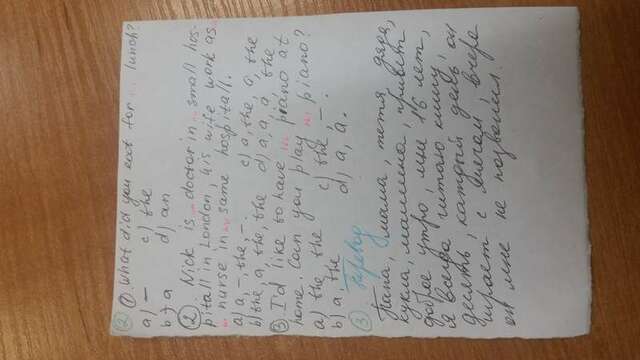 ② ① What did you eat for ... lunch?
a) – c) the
b) a d) an
② Nick is ... doctor in ... small hos-
pitall in London, his wife work as ...
... nurse in ... same hospitall.
a) a, –, the, –. c) a, the, a, the
b) the, a, the, the d) a, a, a, the
③ I'd like to have ... piano at
home. Can you play ... piano?
a) the, the c) the, –.
b) a, the d) a, a.
③ Перевод
Папа, мама, тетя, дядя,
кукла, машина, привет
доброе утро, мне 16 лет,
я всегда читаю книгу,
десять, каждый день он
играет с мячом, вчера
он мне не позвонил.